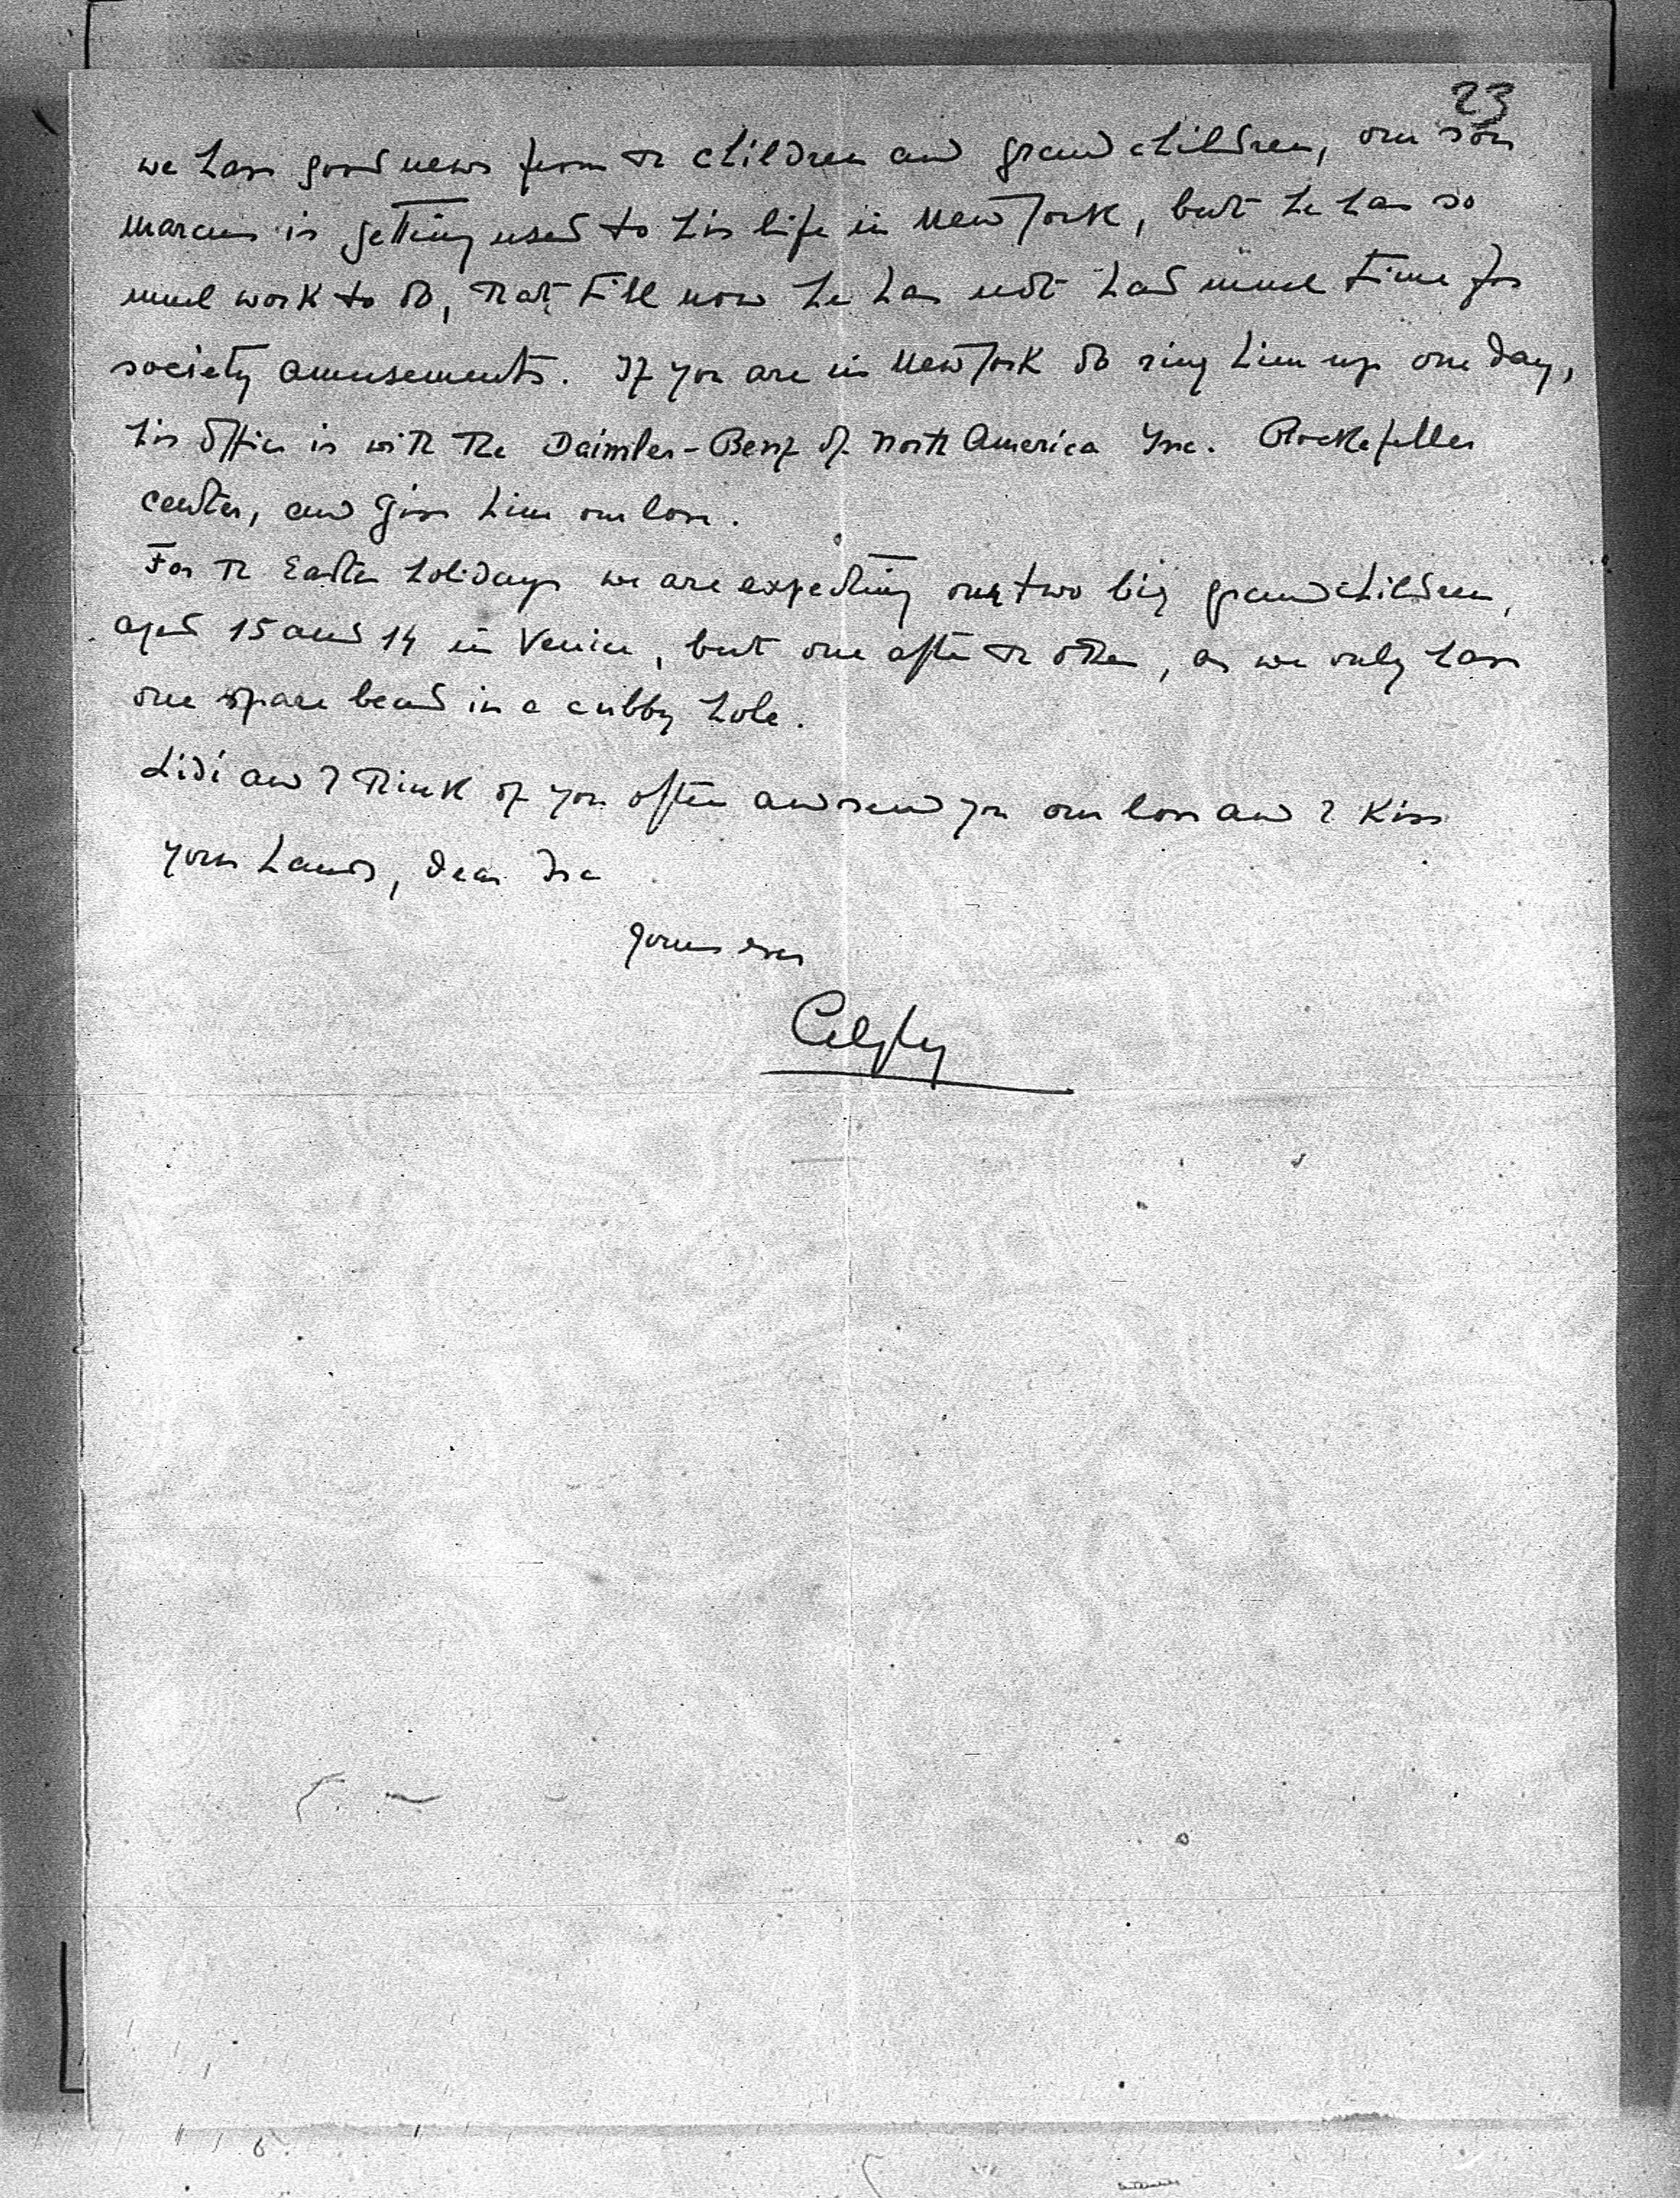 23
we have good news from the children and grandchildren, our son
Marcus is getting used to his life in New York, but he has so
much work to do, that till now he has not had much time for
society amusements. If you are in New York do ring him up one day,
his office is with the Daimler-Benz of North America Inc. Rockefeller
center, and give him our love.
For the Easter holidays we are expecting our two big grandchildren,
aged 15 and 14 in Venice, but one after the other, as we only have
one spare bed in a cubby hole.
Lidi and I think of you often and send you our love and I kiss
your hands, dear Isa
yours ever